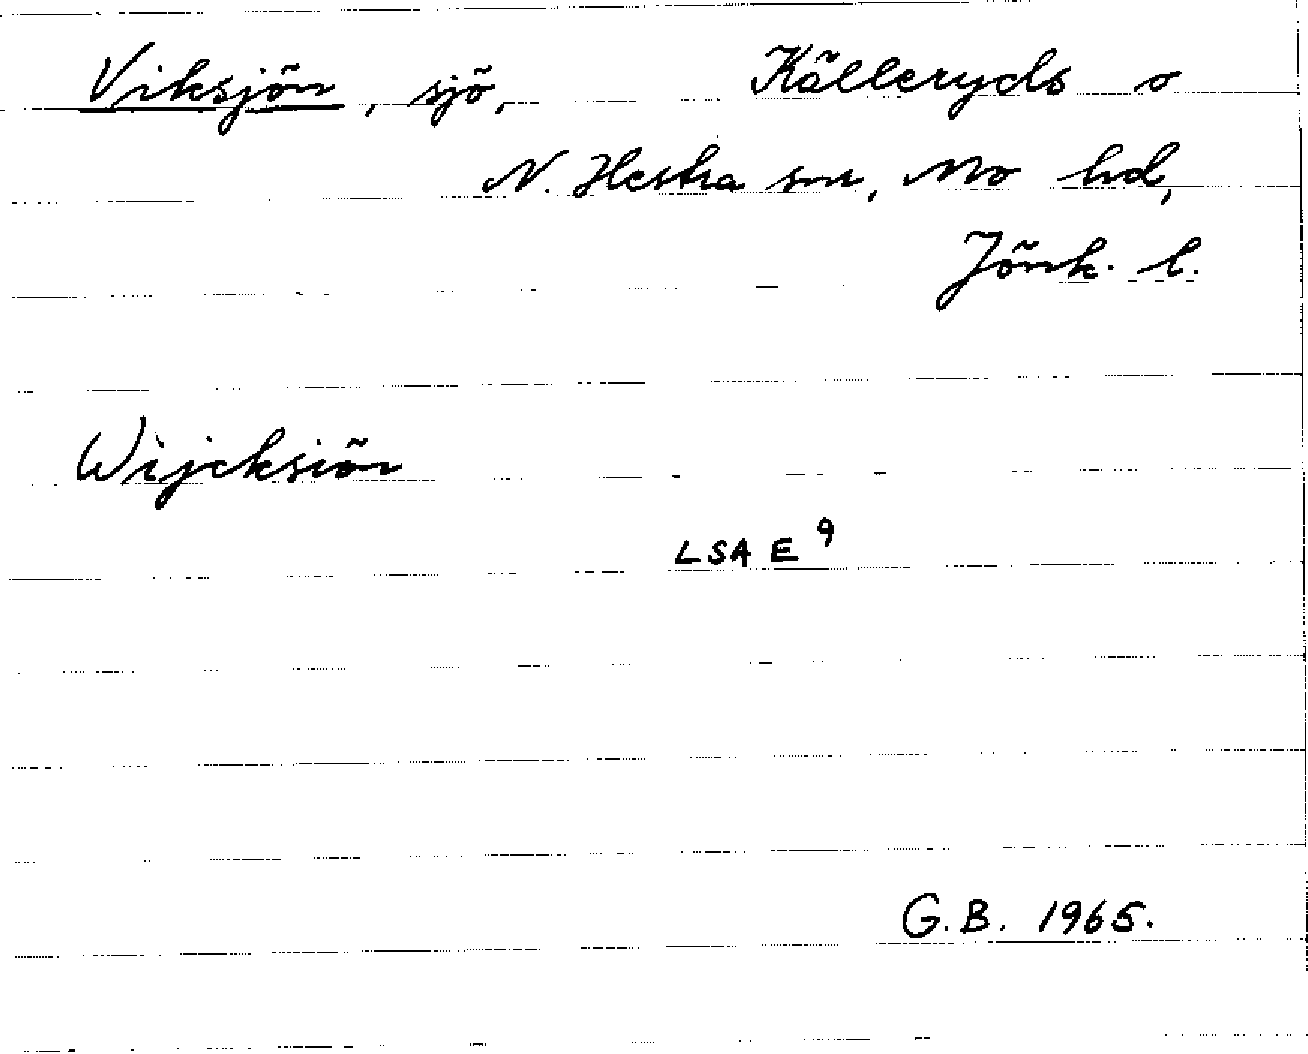 Viksjön, sjö, Källeryds o
N. Hestra snr, Mo hd,
Jönk. l.
Wijcksiön
LSA E 9
G.B. 1965.